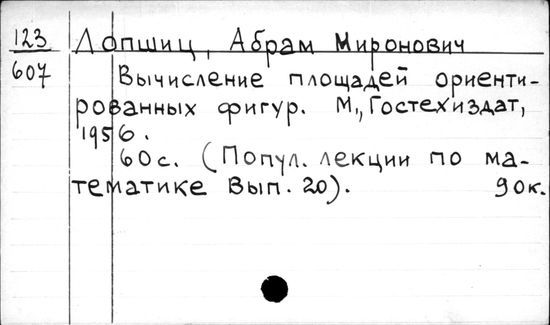 123 Лопшиц, Абрам Миронович
607 Вычисление площадей ориенти-
рованных фигур. М., Гостехиздат,
1956.
60с. (Попул. лекции по ма-
тематике Вып. 20). 90к.